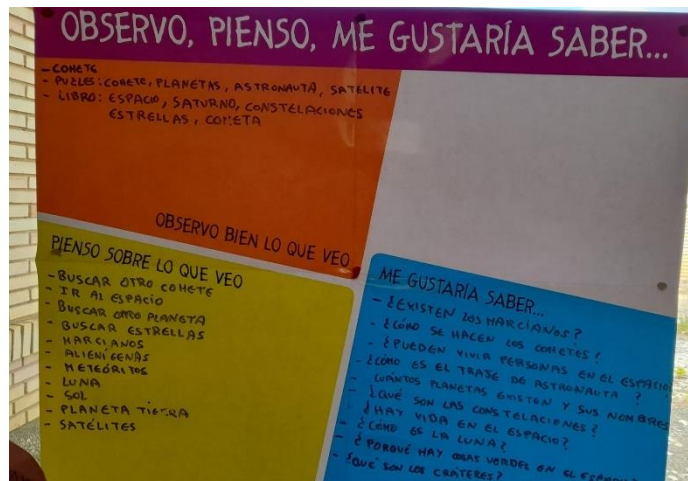 OBSERVO, PIENSO, ME GUSTARÍA SABER...
- COHETE
- PUZLES: COHETE, PLANETAS, ASTRONAUTA, SATÉLITE
- LIBRO: ESPACIO, SATURNO, CONSTELACIONES
ESTRELLAS, COMETA
OBSERVO BIEN LO QUE VEO
PIENSO SOBRE LO QUE VEO
- BUSCAR OTRO COHETE
- IR AL ESPACIO
- BUSCAR OTRO PLANETA
- BUSCAR ESTRELLAS
- MARCIANOS
- ALIENÍGENAS
- METEÓRITOS
- LUNA
- SOL
- PLANETA TIERRA
- SATÉLITES
ME GUSTARÍA SABER...
- ¿EXISTEN LOS MARCIANOS?
- ¿CÓMO SE HACEN LOS COHETES?
- ¿PUEDEN VIVIR PERSONAS EN EL ESPACIO
- ¿CÓMO ES EL TRAJE DE ASTRONAUTA?
- CUÁNTOS PLANETAS EXISTEN Y SUS NOMBRES
- ¿QUÉ SON LAS CONSTELACIONES?
- ¿HAY VIDA EN EL ESPACIO?
- ¿CÓMO ES LA LUNA?
- ¿PORQUÉ HAY COSAS VERDES EN EL
- ¿QUÉ SON LOS CRÁTERES?